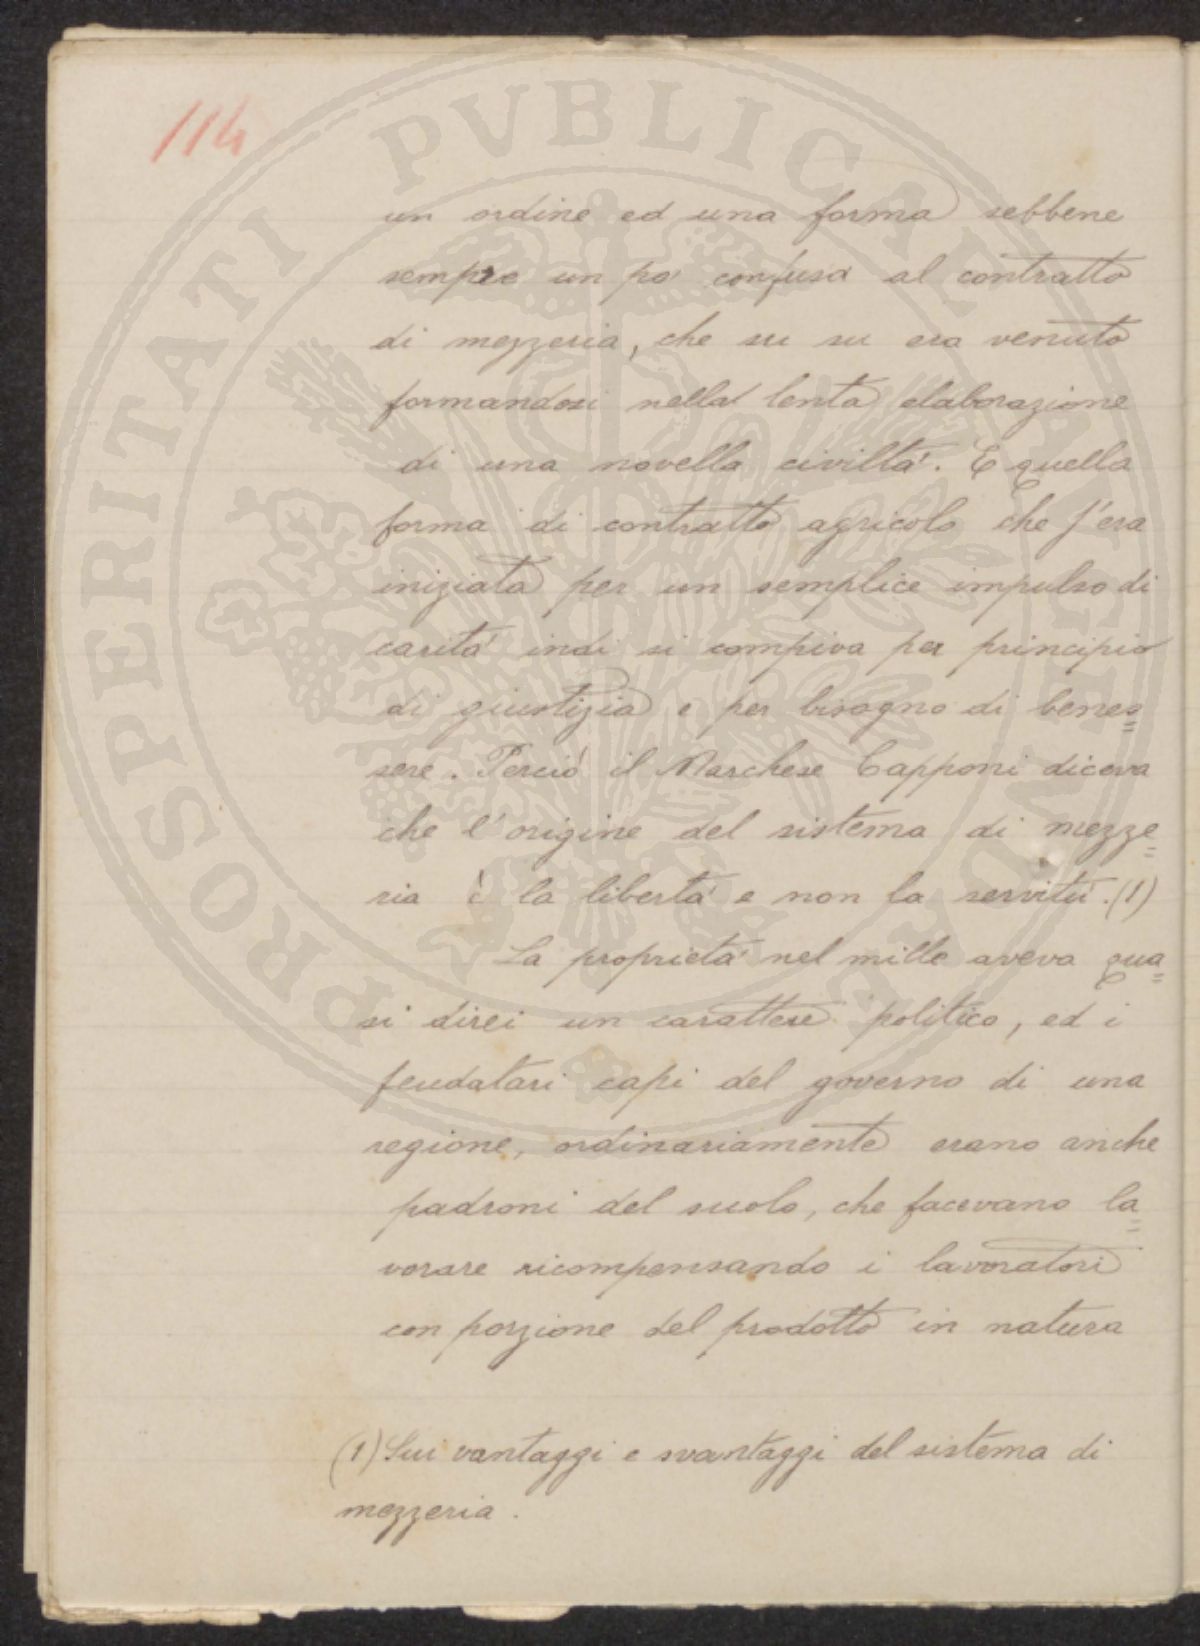 114
un ordine ed una forma sebbene
sempre un po' confusa al contratto
di mezzeria, che su su era venuto
formandosi nella lenta elaborazione
di una novella civiltà. E quella
forma di contratto agricolo che s'era
iniziata per un semplice impulso di
carità indi si compiva per principio
di giustizia e per bisogno di benes=
sere. Perciò il Marchese Capponi diceva
che l'origine del sistema di mezze=
ria è la libertà e non la servitù. (1)
La proprietà nel mille aveva qua=
si direi un carattere politico, ed i
feudatari capi del governo di una
regione, ordinariamente erano anche
padroni del suolo, che facevano la=
vorare ricompensando i lavoratori
con porzione del prodotto in natura
(1) Sui vantaggi e svantaggi del sistema di
mezzeria.
PROSPERITATI PVBLICAE AVGENDAE